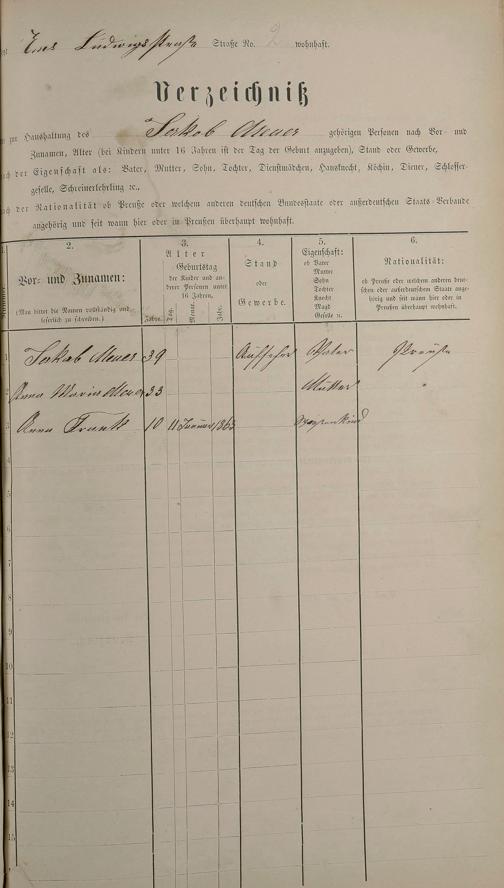 Ems Ludwigsstraße Straße No. 2 wohnhaft.
Verzeichniß
zur Haushaltung des Jakob Meuer gehörigen Personen nach Vor- und
Zunamen, Alter (bei Kindern unter 16 Jahren ist der Tag der Geburt anzugeben), Stand oder Gewerbe,
nach der Eigenschaft als: Vater, Mutter, Sohn, Tochter, Dienstmädchen, Hausknecht, Köchin, Diener, Schlosser-
geselle, Schreinerlehrling ꝛc.,
nach der Nationalität ob Preuße oder welchem anderen deutschen Bundesstaate oder außerdeutschen Staats-Verbande
angehörig und seit wann hier oder in Preußen überhaupt wohnhaft.
Nummer.
2.
Vor- und Zunamen:
(Man bittet die Namen vollständig und
leserlich zu schreiben.)
3.
Alter
Geburtstag
der Kinder und an-
derer Personen unter
16 Jahren,
Jahre.
Tag.
Monat.
Jahr.
4.
Stand
oder
Gewerbe.
5.
Eigenschaft:
ob Vater
Mutter
Sohn
Tochter
Knecht
Magd
Geselle ꝛc.
6.
Nationalität:
ob Preuße oder welchem anderen deut-
schen oder außerdeutschen Staate ange-
hörig und seit wann hier oder in
Preußen überhaupt wohnhaft.
1 Jakob Meuer 39 Aufseher Vater Preuße
2 Anna Maria Meuer 33 Mutter "
3 Anna Frank 10 11 Januar 1863
4
5
6
7
8
9
10
11
12
13
14
15